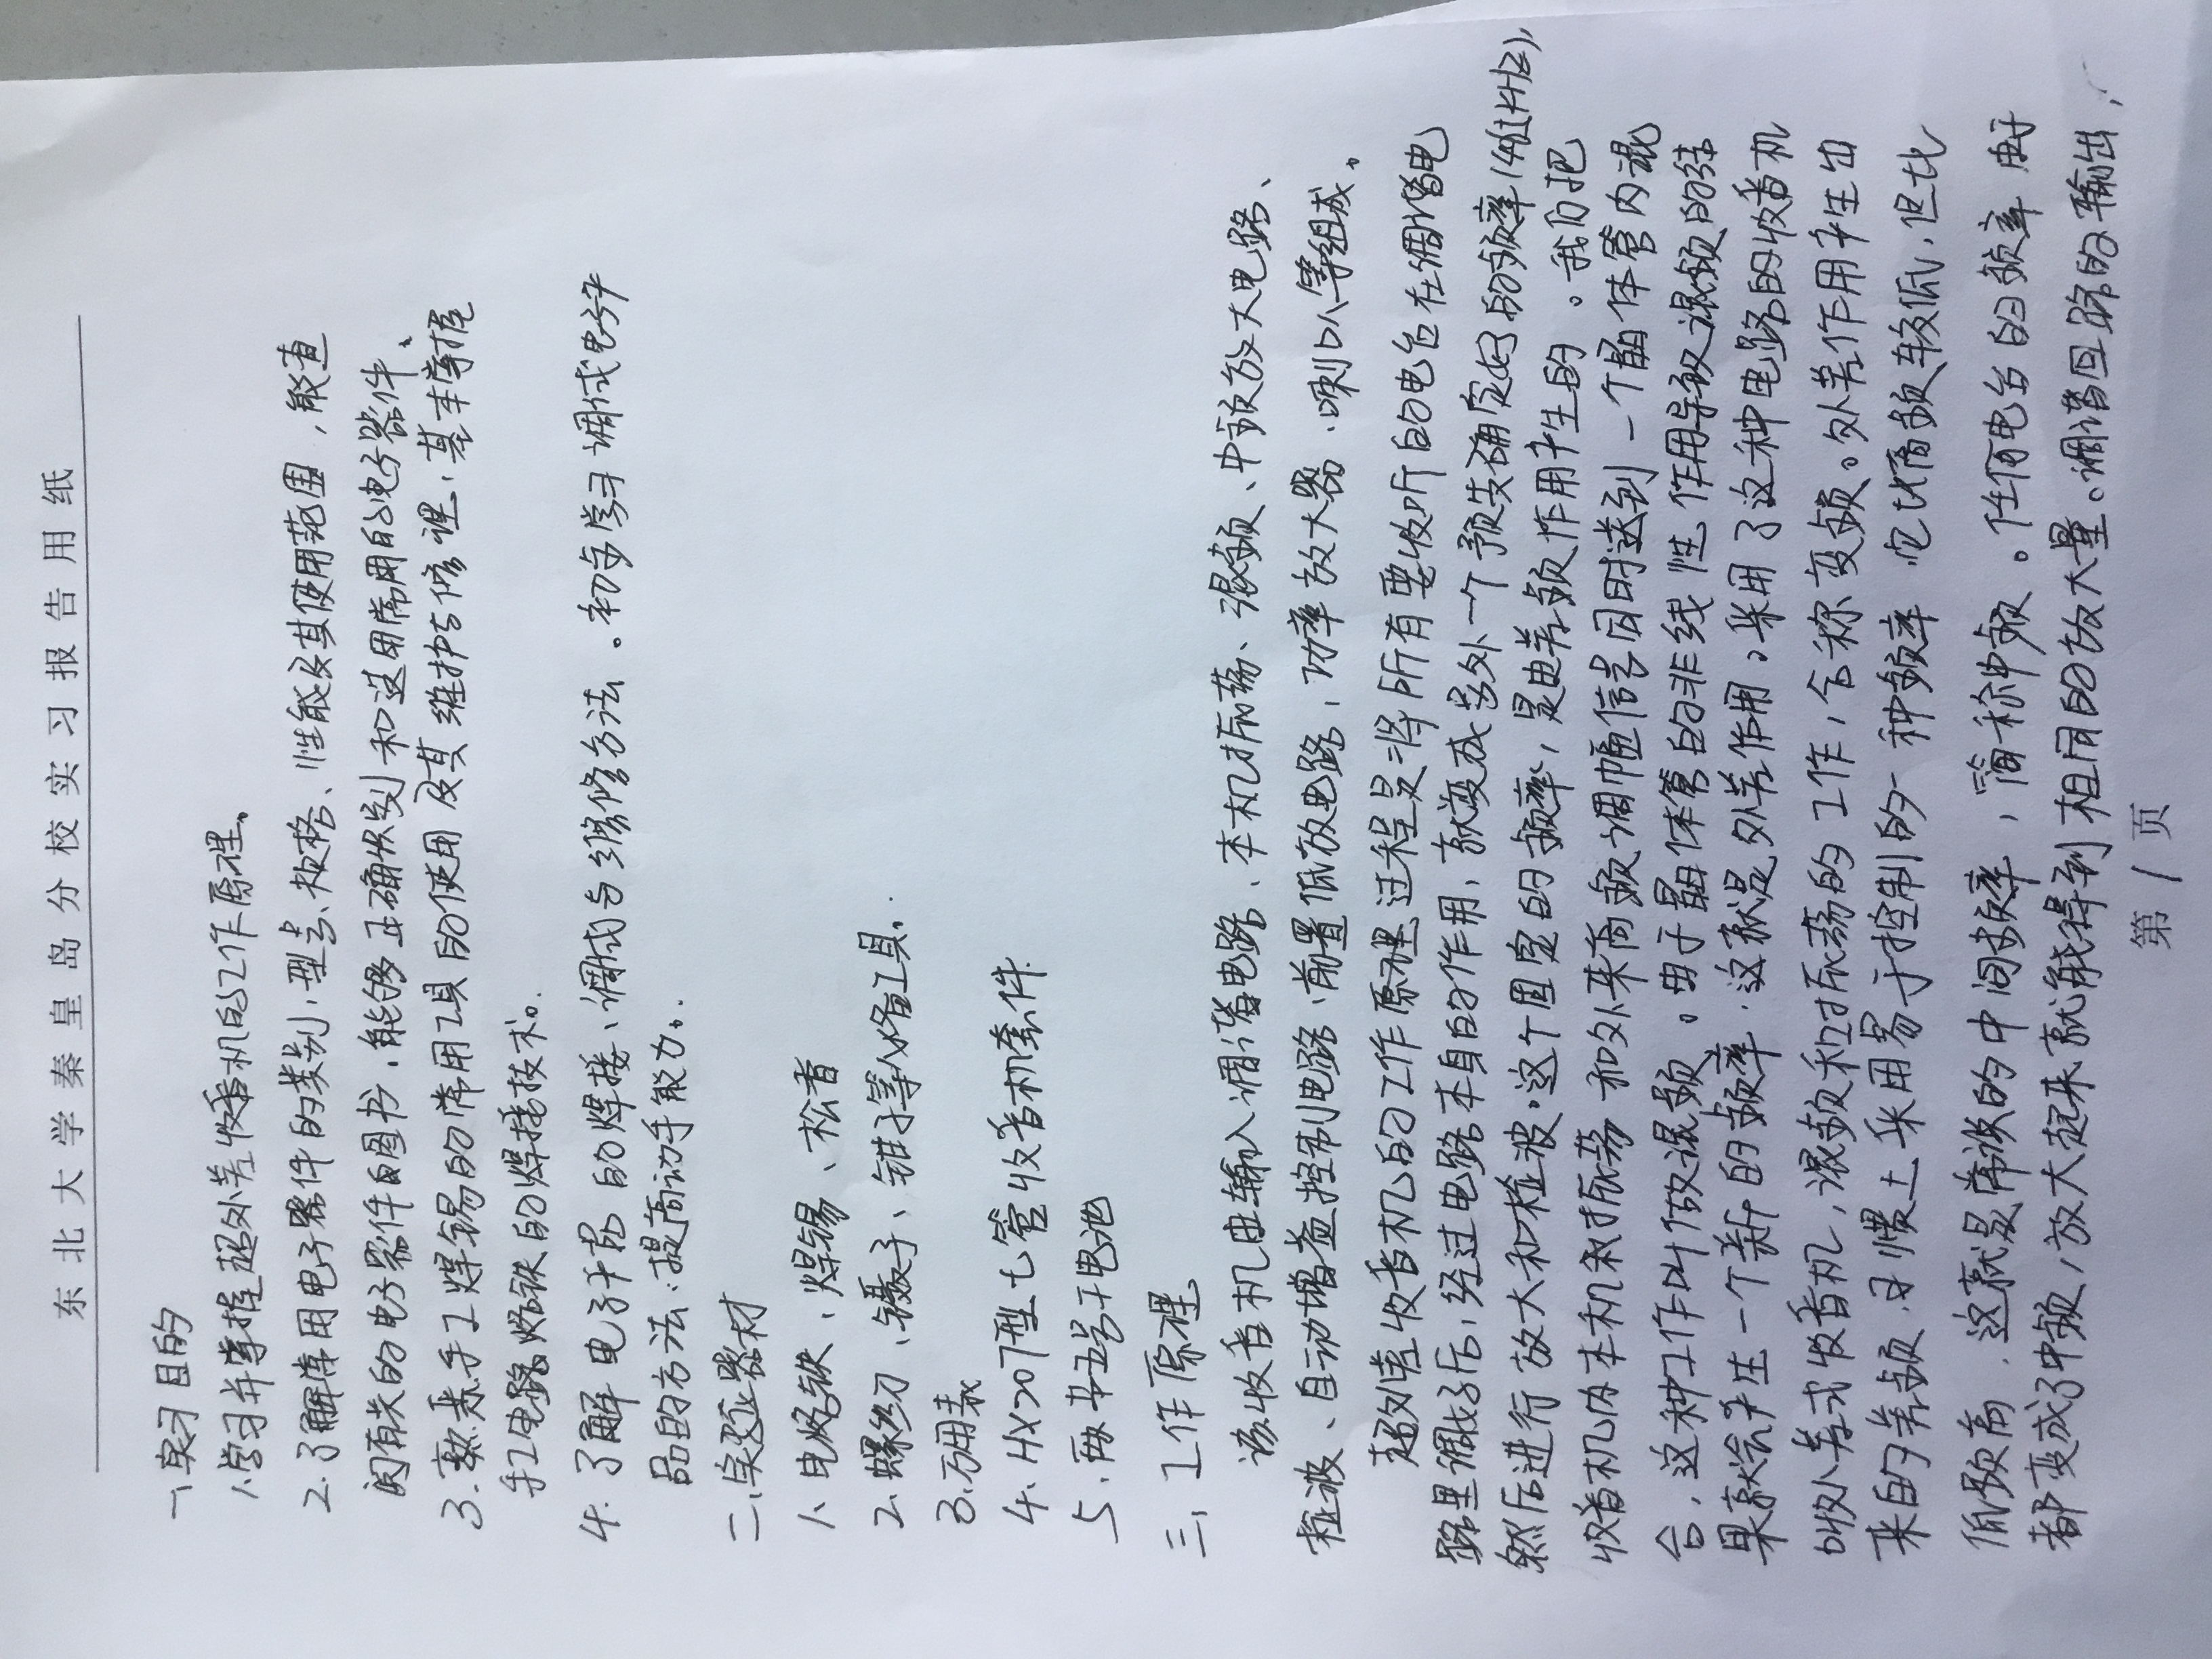 东北大学秦皇岛分校实习报告用纸
一、实习目的
1.学习并掌握超外差收音机的工作原理。
2.了解常用电子器件的类别、型号、规格、性能及其使用范围，能查
阅有关的电子器件图书，能够正确识别和选用常用的电子器件、
3.熟悉手工焊锡的常用工具的使用及其维护与修理、基本掌握
手工电路烙铁的焊接技术。
4.了解电子产品的焊接、调试与维修方法。初步学习调试电子产
品的方法；提高动手能力。
二、实验器材
1、电烙铁、焊锡、松香
2、螺丝刀、镊子、钳子等必备工具。
3、万用表
4、HX207型七管收音机套件
5、两节五号干电池
三、工作原理
该收音机由输入调谐电路、本机振荡、混频、中频放大电路、
检波、自动增益控制电路、前置低放电路、功率放大器、喇叭等组成。
超外差收音机的工作原理过程是：将所有要收听的电台在调谐电
路里调好后，经过电路本身的作用，就变成另外一个预先确定好的频率(465KHz)，
然后进行放大和检波。这个固定的频率，是由差频作用产生的。我们把
收音机内本机振荡和外来高频调幅信号同时送到一个晶体管内混
合，这种工作叫做混频。由于晶体管的非线性作用导致混频的结
果就会产生一个新的频率，这就是外差作用。采用了这种电路的收音机
叫外差式收音机，混频和振荡的工作，合称变频。外差作用产生出
来的差频，习惯上采用易于控制的一种频率，它比高频较低，但比
低频高，这就是常说的中间频率，简称中频。任何电台的频率由于
都变成了中频，放大起来就能得到相同的放大量。调谐回路的输出，
第1页